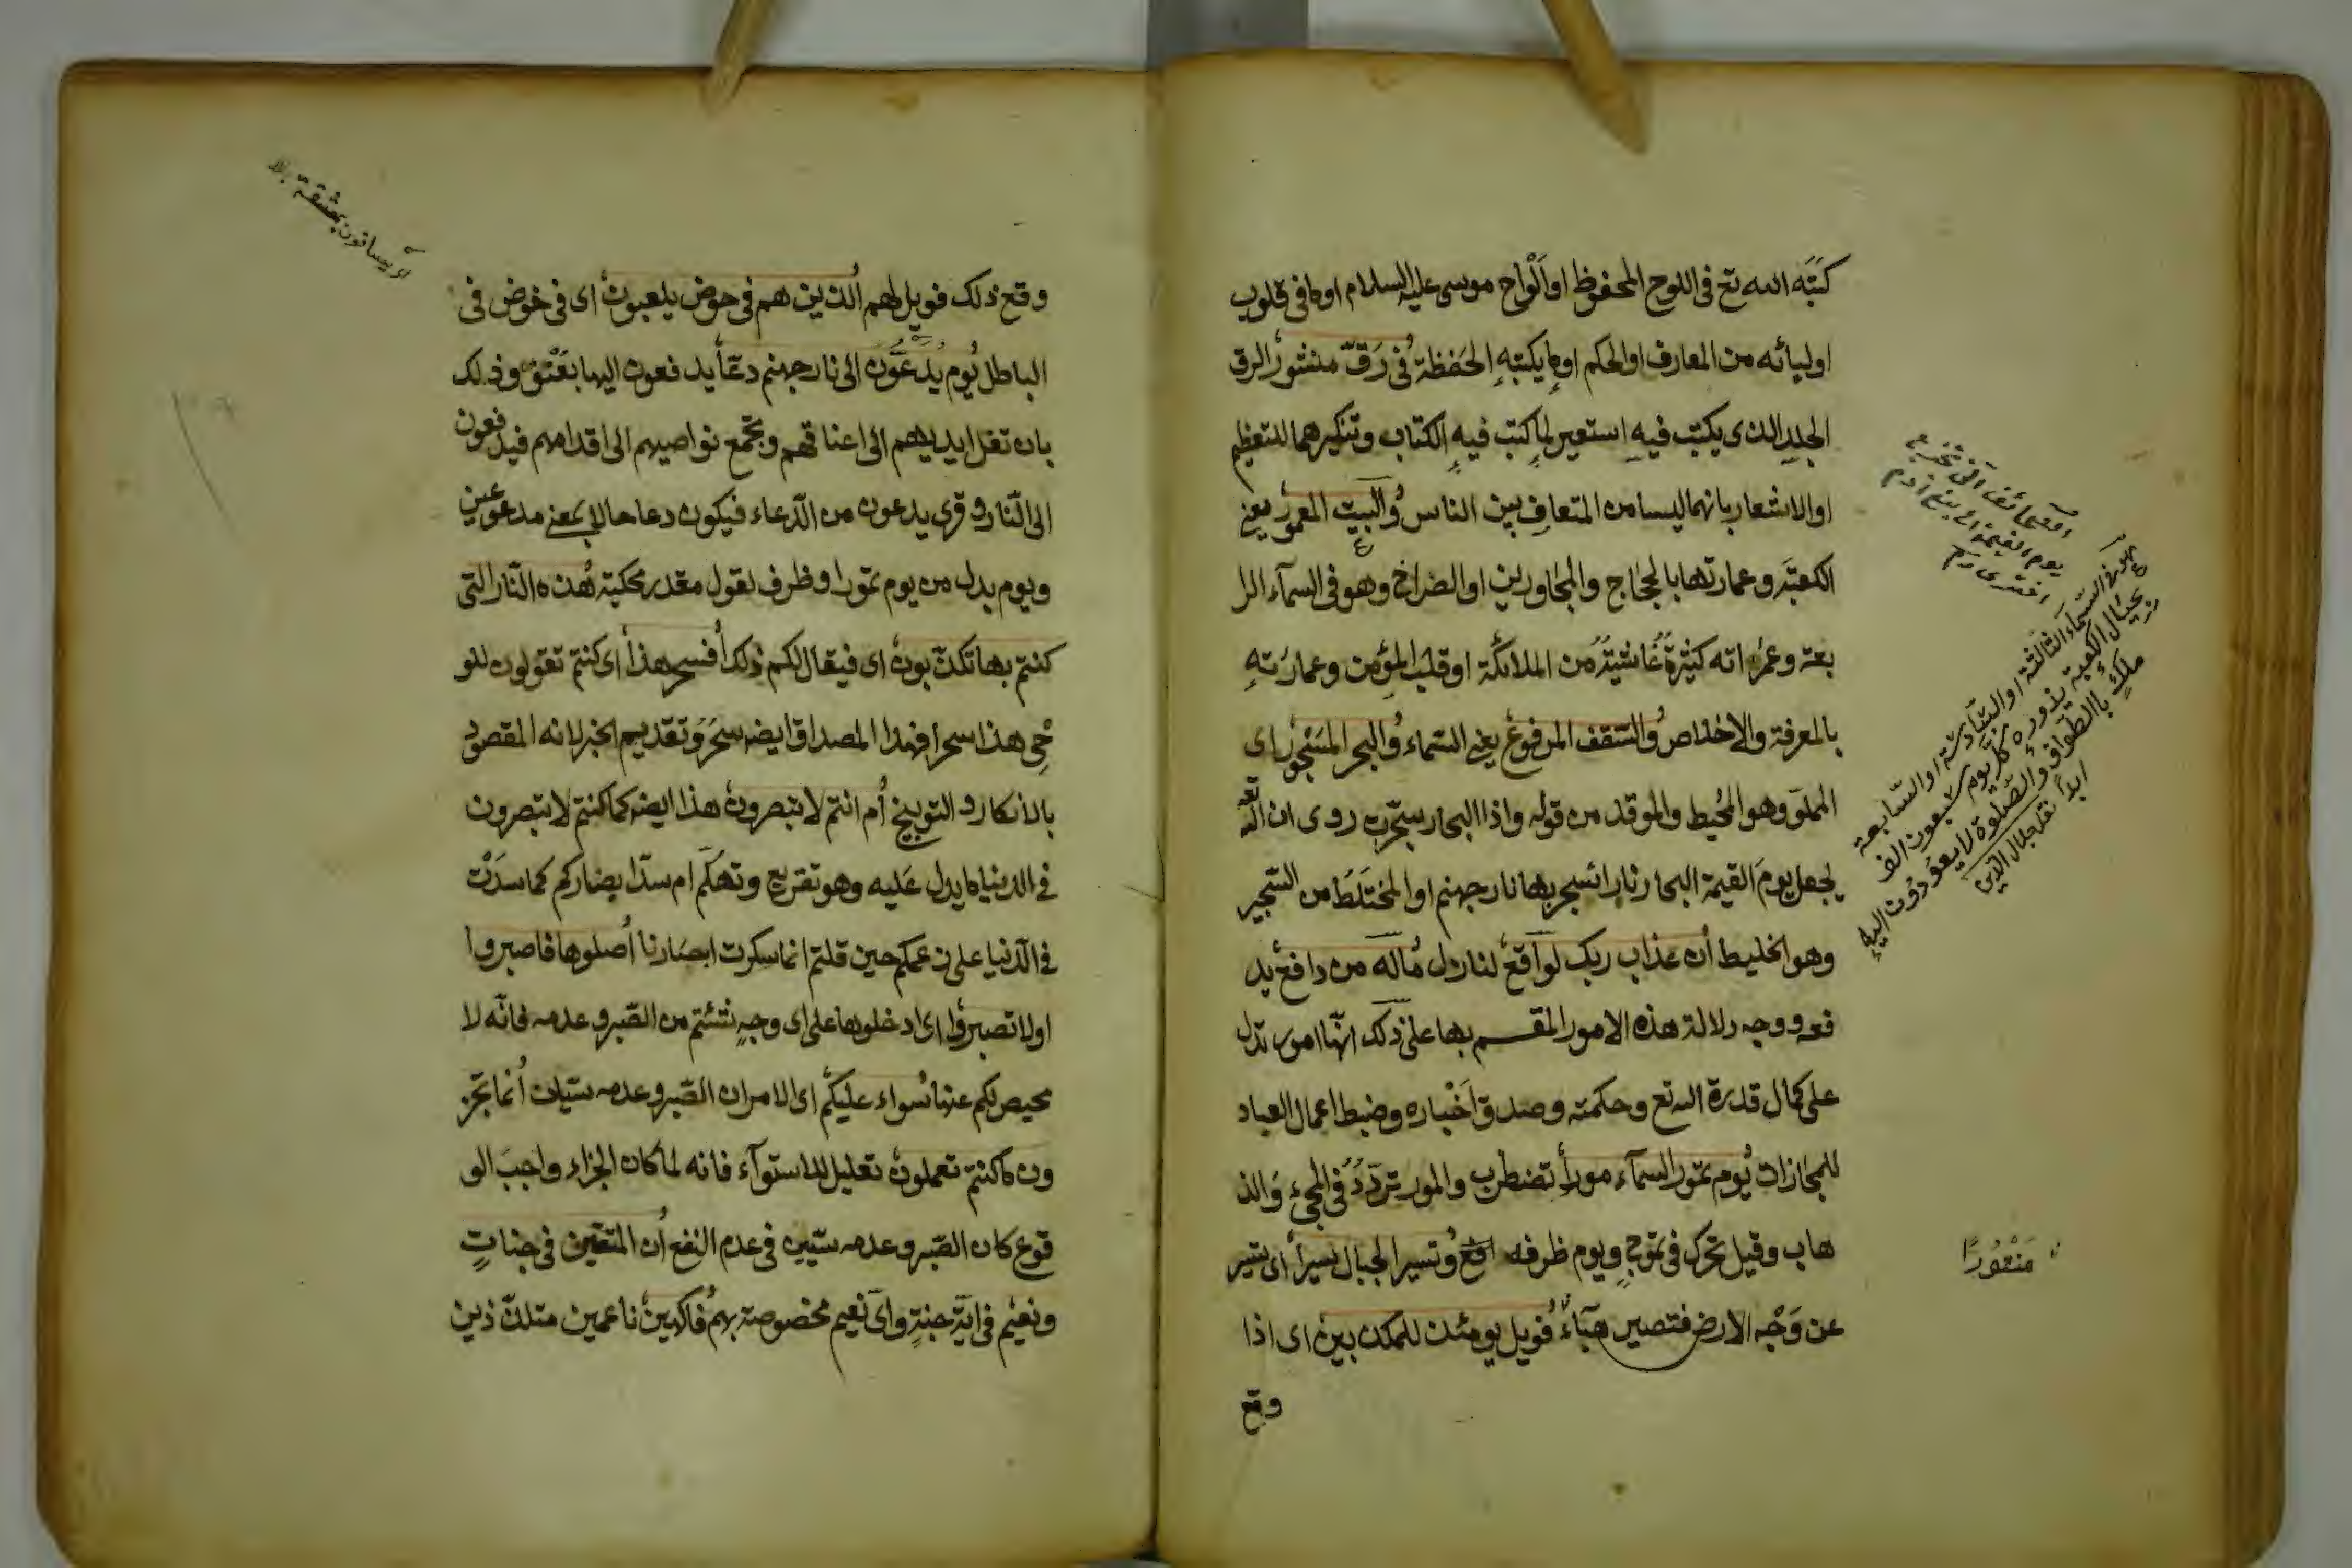 كتبه الله تع في اللوح المحفوظ او اَلْواح موسى عليه السلام او ما في قلوب
اوليائه من المعارف او الحكم او ما يكتبه الحَفظة في رَقّ منشور الرق
الجلد الذى يكتب فيه استعير لما كتب فيه الكتاب وتنكيرهما للتعظيم
او الاشعار بانهما ليسا من المتعارف بين الناس والبيت المعمور يعني
الكعبة وعمارتها بالحجاج والمجاورين او الضراخ وهو في السمآء الرا
بعة وعمرانه كثرة غاشيته من الملائكة او قلب المؤمن وعمارته
بالمعرفة والاخلاص والسقف المرفوع يعني السماء والبحر المسجور اى
المملوّ وهو المحيط والموقد من قوله واذا البحار سجرت روى ان الله تعه
يجعل يومَ القيمة البحار نارا تسجر بها نار جهنم او المختلَط من السجير
وهو الخليط ان عذاب ربك لواقع لنازل ماله من دافع يد
فعه ووجه دلالة هذه الامور المقسم بها على ذلك انّها امور تدل
على كمال قدرة الله تع وحكمته وصدق اَخْباره وضبط اعمال العباد
للمجازات يوم تمور السمآء موراً تضطرب والمور تردّد في المجئ والذ
هاب وقيل تحرك في تموج ويوم ظرفه وتسير الجبال سيراً اى تسير
عن وَجْه الارض فتصير هبآءً فويل يومئذ للمكذبين اى اذا
وقع
الصحائف التى تخرج
يوم القيمة الى بنى آدم
هو في السّماء الثالثة او السّادسة او السّابعة
بحيال الكعبة يزوره كلّ يوم سبعون الف
ملكٍ بالطّواف والصّلوة لا يعودون اليه
ابداً نقل جلال الدّين
مَنْثُورًا
وقع ذلك فويل لهم الذين هم في خوض يلعبون اى في خوض في
الباطل يوم يُدَعُّون الى نار جهنم دعّاً يدفعون اليها بعَنْف وذلك
بان تغل ايديهم الى اعناقهم وتجمع نواصيهم الى اقدامهم فيدفعون
الى النّار وقرى يدعون من الدّعاء فيكون دعا حالا بمعنى مدعوعين
ويوم بدل من يوم تمور او ظرف لقول مقدر محكية هذه النّار التى
كنتم بها تكذّبون اى فيقال لكم ذلك أفسحر هذا اى كنتم تقولون للو
حْي هذا سحر افهذا المصداق ايضه سحَر وتقديم الخبر لانه المقصود
بالانكار والتوبيخ أم انتم لا تبصرون هذا ايضه كما كنتم لا تبصرون
في الدنيا ما يدل عَليه وهو تقريع وتهكّم ام سدّ ابصاركم كما سدّتْ
في الدّنيا على زعمكم حين قلتم انما سكرت ابصارنا أصلوها فاصبروا
اولا تصبروا اى ادخلوها على اى وجهٍ شئتم من الصّبر وعدمه فانّه لا
محيص لكم عنها سواء عليكم اى الامران الصّبر وعدمه سيّان أنما تجز
ون ما كنتم تعملون تعليل للاستوآء فانه لما كان الجزاء واجبَ الو
قوع كان الصّبر وعدمه سيّين في عدم النفع أن المتقين في جناتٍ
ونعيم في ايّة جنةٍ واىّ نعيم مخصوصة بهم فاكهين ناعمين متلذّذين
يساقون بمشقة